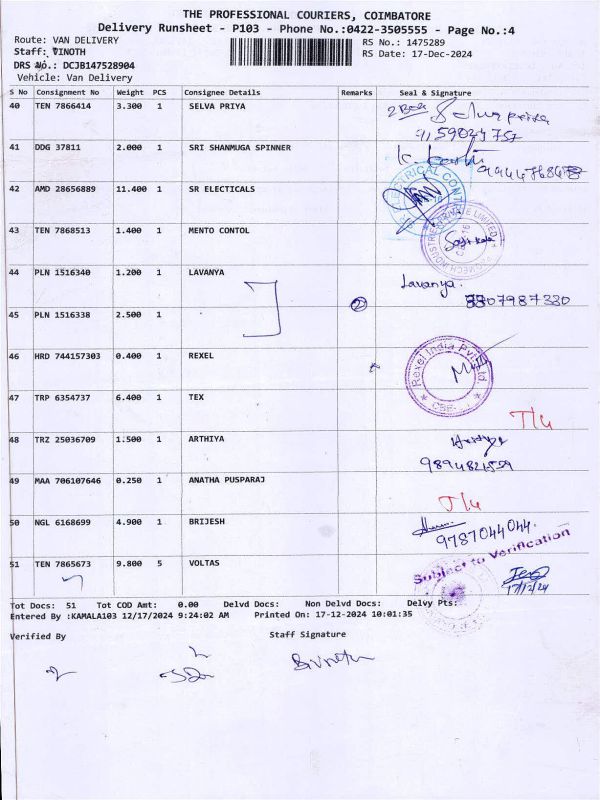 THE PROFESSIONAL COURIERS, COIMBATORE
Delivery Runsheet - P103 - Phone No.:0422-3505555 - Page No.:4
Route: VAN DELIVERY
RS No.: 1475289
Staff: VINOTH
RS Date: 17-Dec-2024
DRS No.: DCJB147528904
Vehicle: Van Delivery
S No Consignment No Weight PCS Consignee Details Remarks Seal & Signature
40 TEN 7866414 3.300 1 SELVA PRIYA
41 DDG 37811 2.000 1 SRI SHANMUGA SPINNER
42 AMD 28656889 11.400 1 SR ELECTICALS
43 TEN 7868513 1.400 1 MENTO CONTOL
44 PLN 1516340 1.200 1 LAVANYA Lavanya.
45 PLN 1516338 2.500 1 2
46 HRD 744157303 0.400 1 REXEL Rexel India Pvt. Ltd.
47 TRP 6354737 6.400 1 TEX T/4
48 TRZ 25036709 1.500 1 ARTHIYA
49 MAA 706107646 0.250 1 ANATHA PUSPARAJ T/4
50 NGL 6168699 4.900 1 BRIJESH 9787044044.
51 TEN 7865673 9.800 5 VOLTAS Subject to Verification
17/12/24
Tot Docs: 51 Tot COD Amt: 0.00 Delvd Docs: Non Delvd Docs: Delvy Pts:
Entered By :KAMALA103 12/17/2024 9:24:02 AM Printed On: 17-12-2024 10:01:35
Verified By Staff Signature